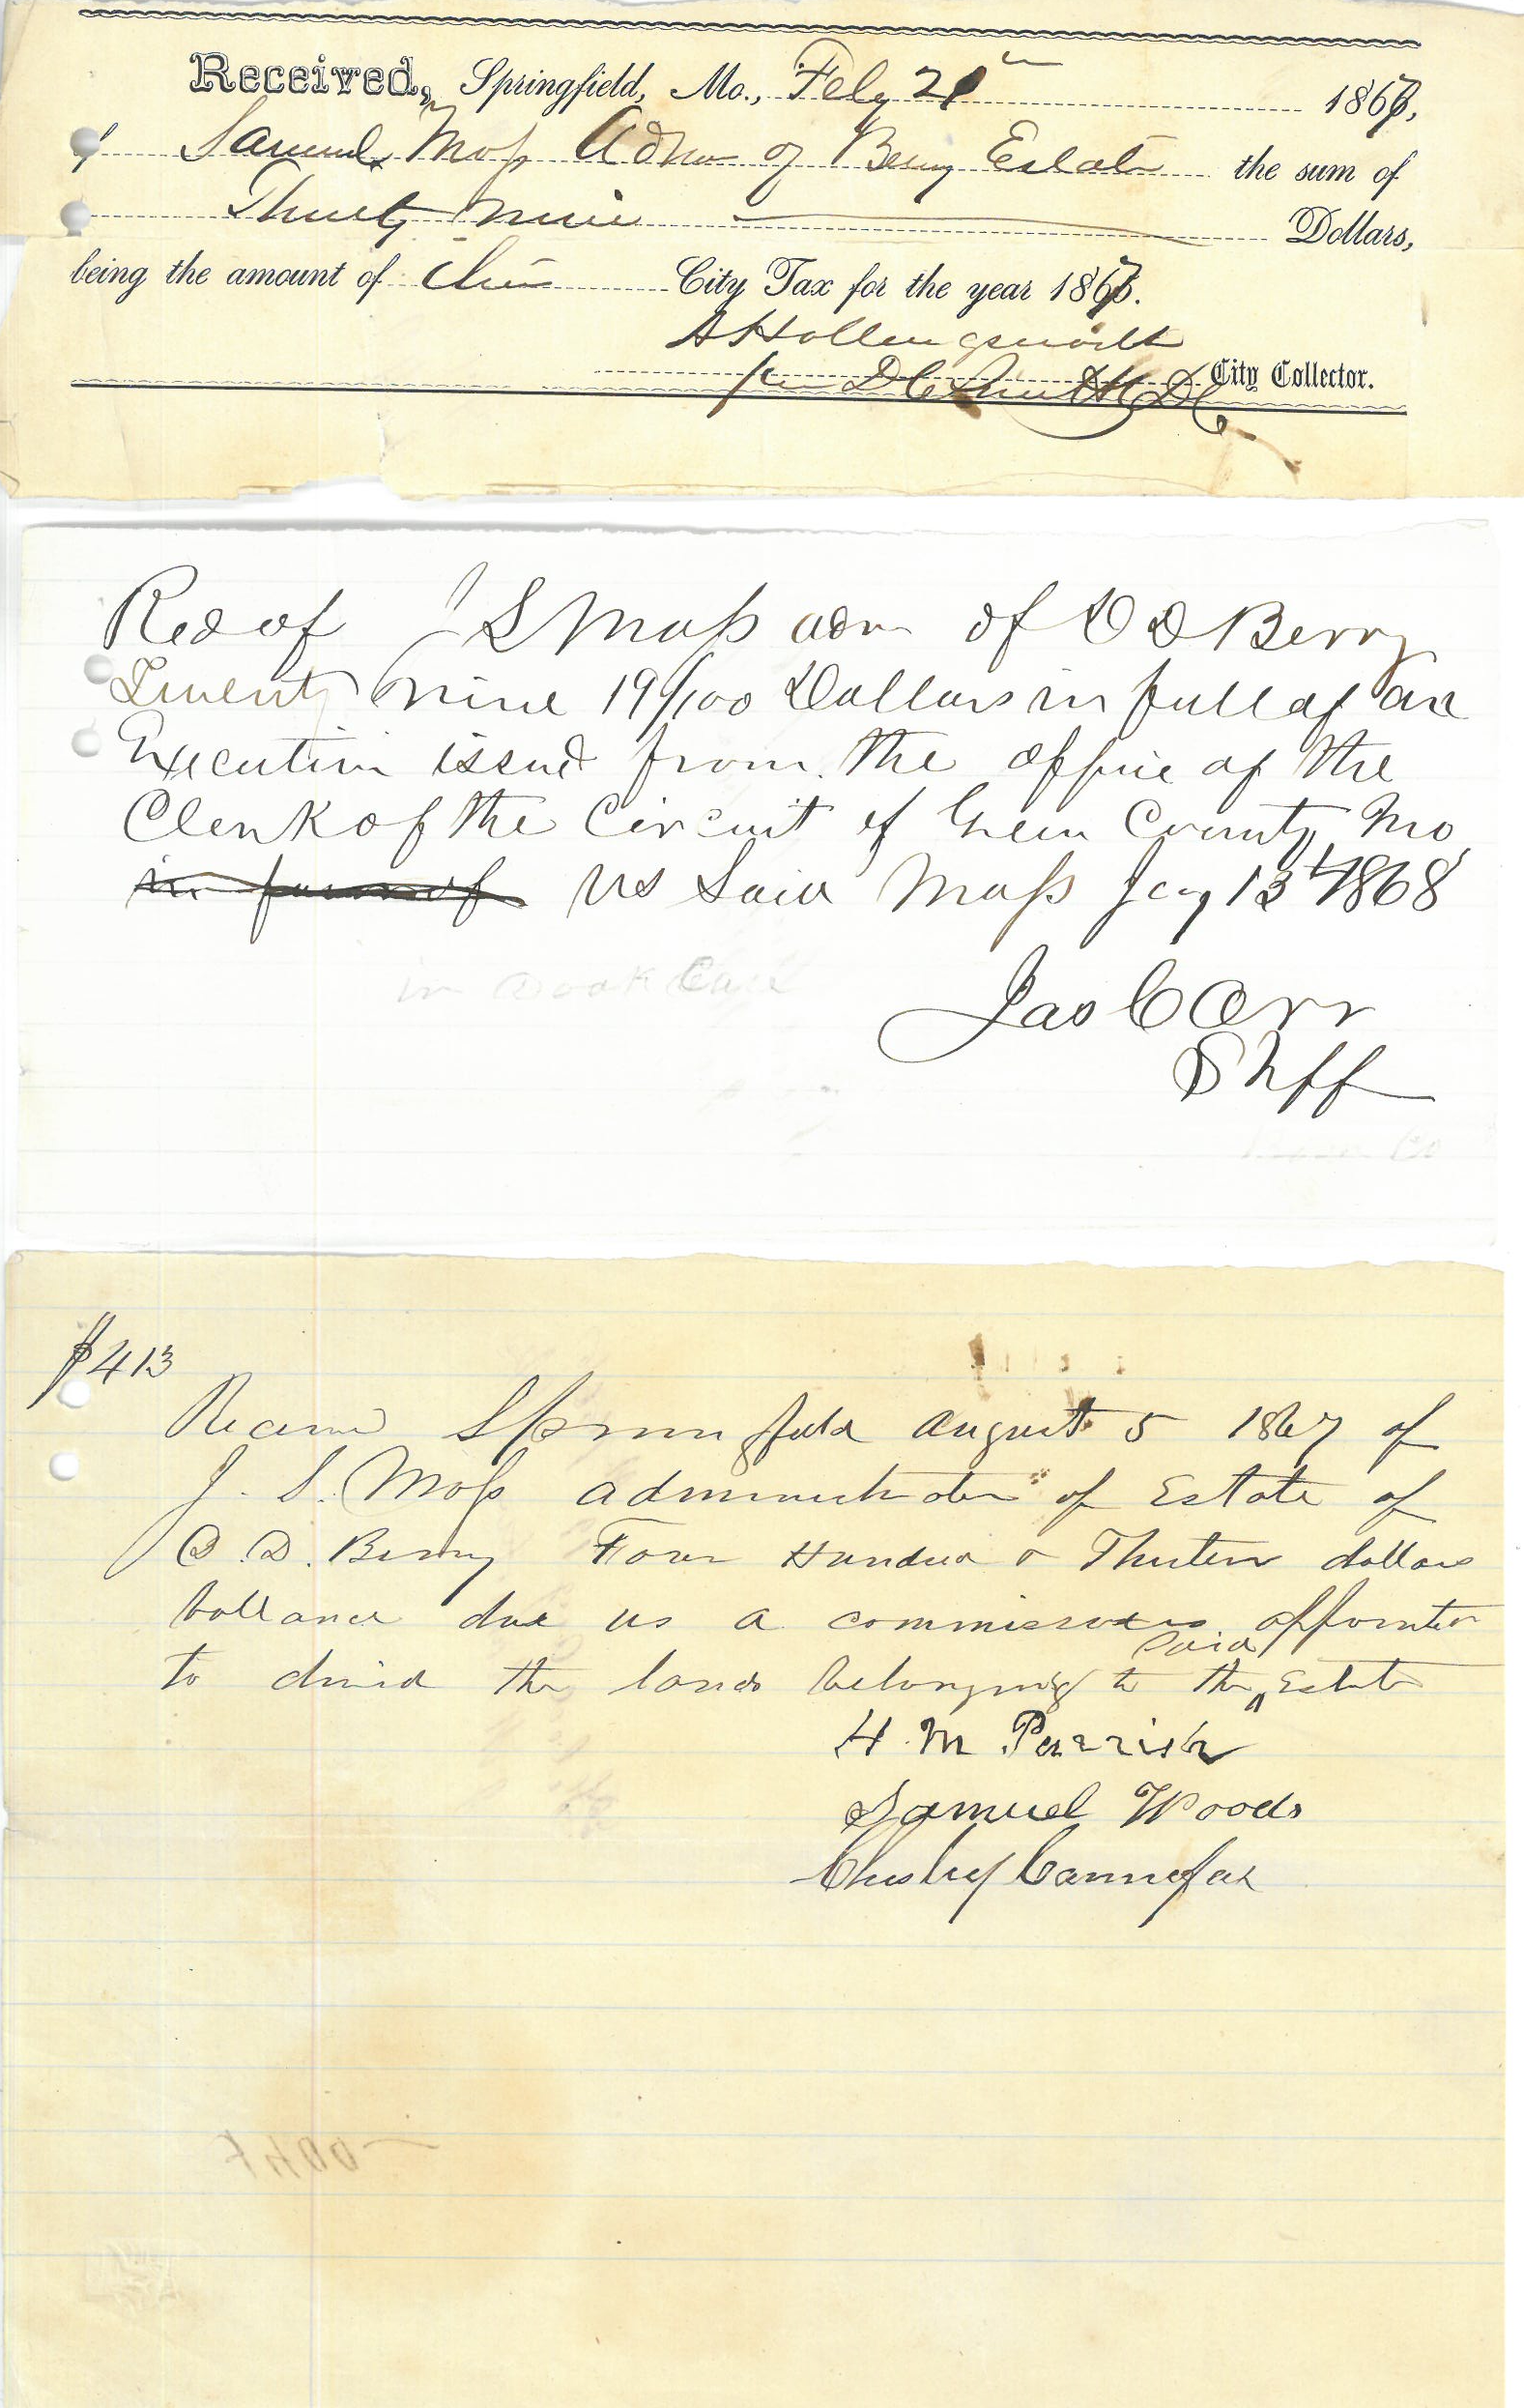 Received, Springfield, Mo., Feby 21 1867,
of Samuel Moss Admr of Berry Estate the sum of
Thirty Nine Dollars,
being the amount of City Tax for the year 1867.
A Hollingsworth
per D C Smith D C City Collector.
Recd of J S Moss adm of D D Berry
Twenty nine 19/100 Dollars in full of an
Execution issued from the office of the
Clerk of the Circuit of Green County Mo
in favor of vs Said Moss Jay 13th 1868
Jas C Orr
Shff
$413
Received Springfield August 5 1867 of
J. S. Moss administrator of Estate of
D. D. Berry Four Hundred & Thirteen dollars
ballance due us a commissioners appointed
to divid the lands belonging to the said Estate
H. M Parrish
Samuel Woods
Chesley Cannefax